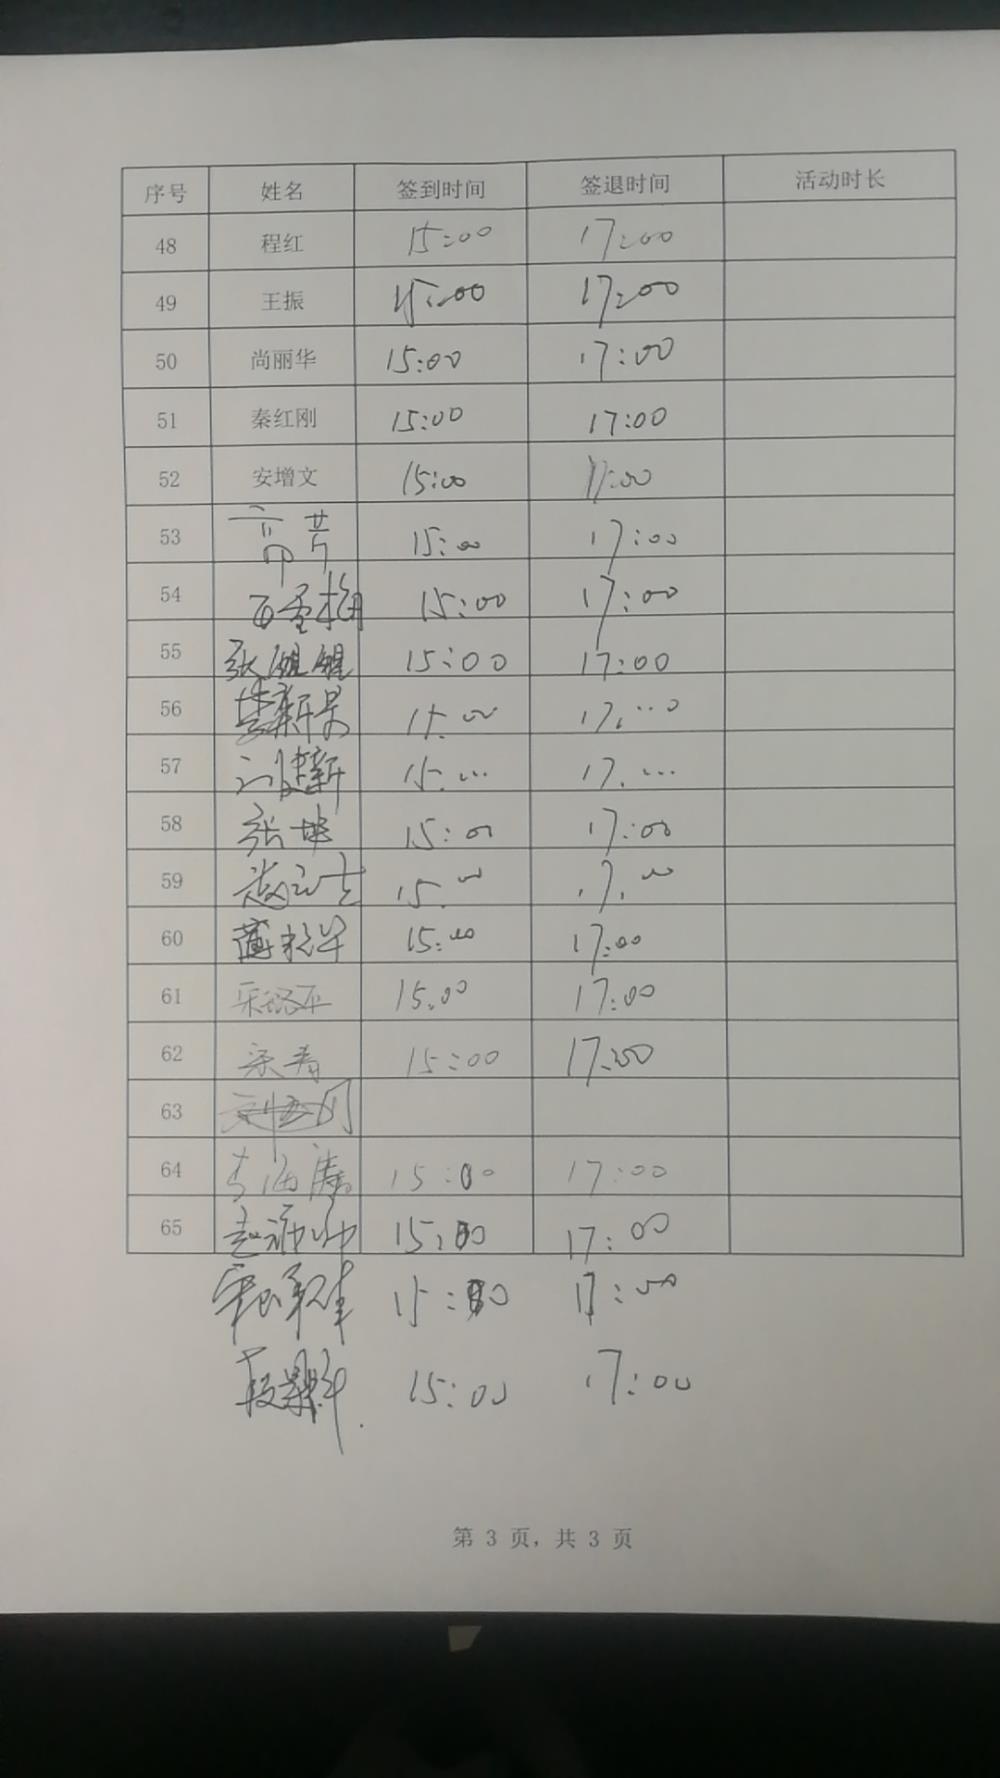 序号 姓名 签到时间 签退时间 活动时长
48 程红 15:00 17:00
49 王振 15:00 17:00
50 尚丽华 15:00 17:00
51 秦红刚 15:00 17:00
52 安增文 15:00 17:00
53 高芳 15:00 17:00
54 15:00 17:00
55 张 15:00 17:00
56 15:00 17:00
57 刘建新 15:00 17:00
58 张坤 15:00 17:00
59 赵 15:00 17:00
60 15:00 17:00
61 15:00 17:00
62 15:00 17:00
63
64 李海涛 15:00 17:00
65 赵 15:00 17:00
15:00 17:00
段 15:00 17:00
第 3 页，共 3 页